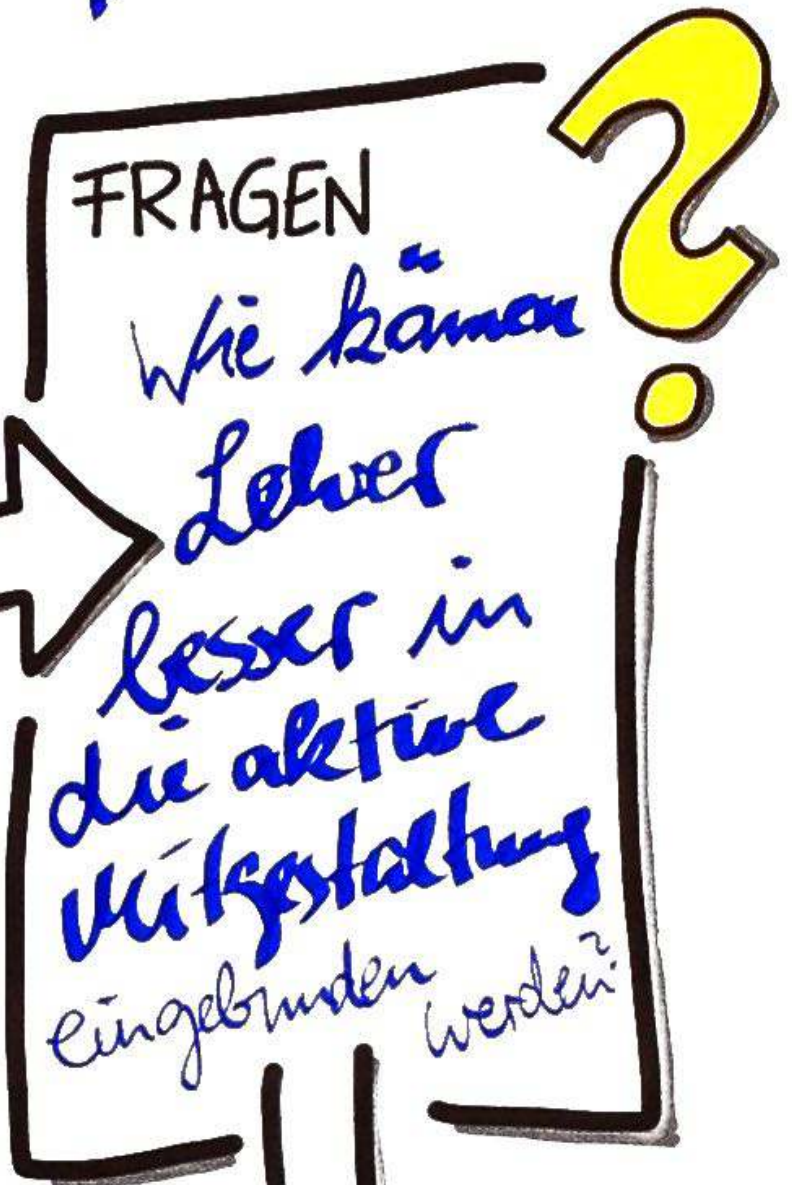 FRAGEN
Wie können
Lehrer
besser in
die aktive
Mitgestaltung
eingebunden werden?